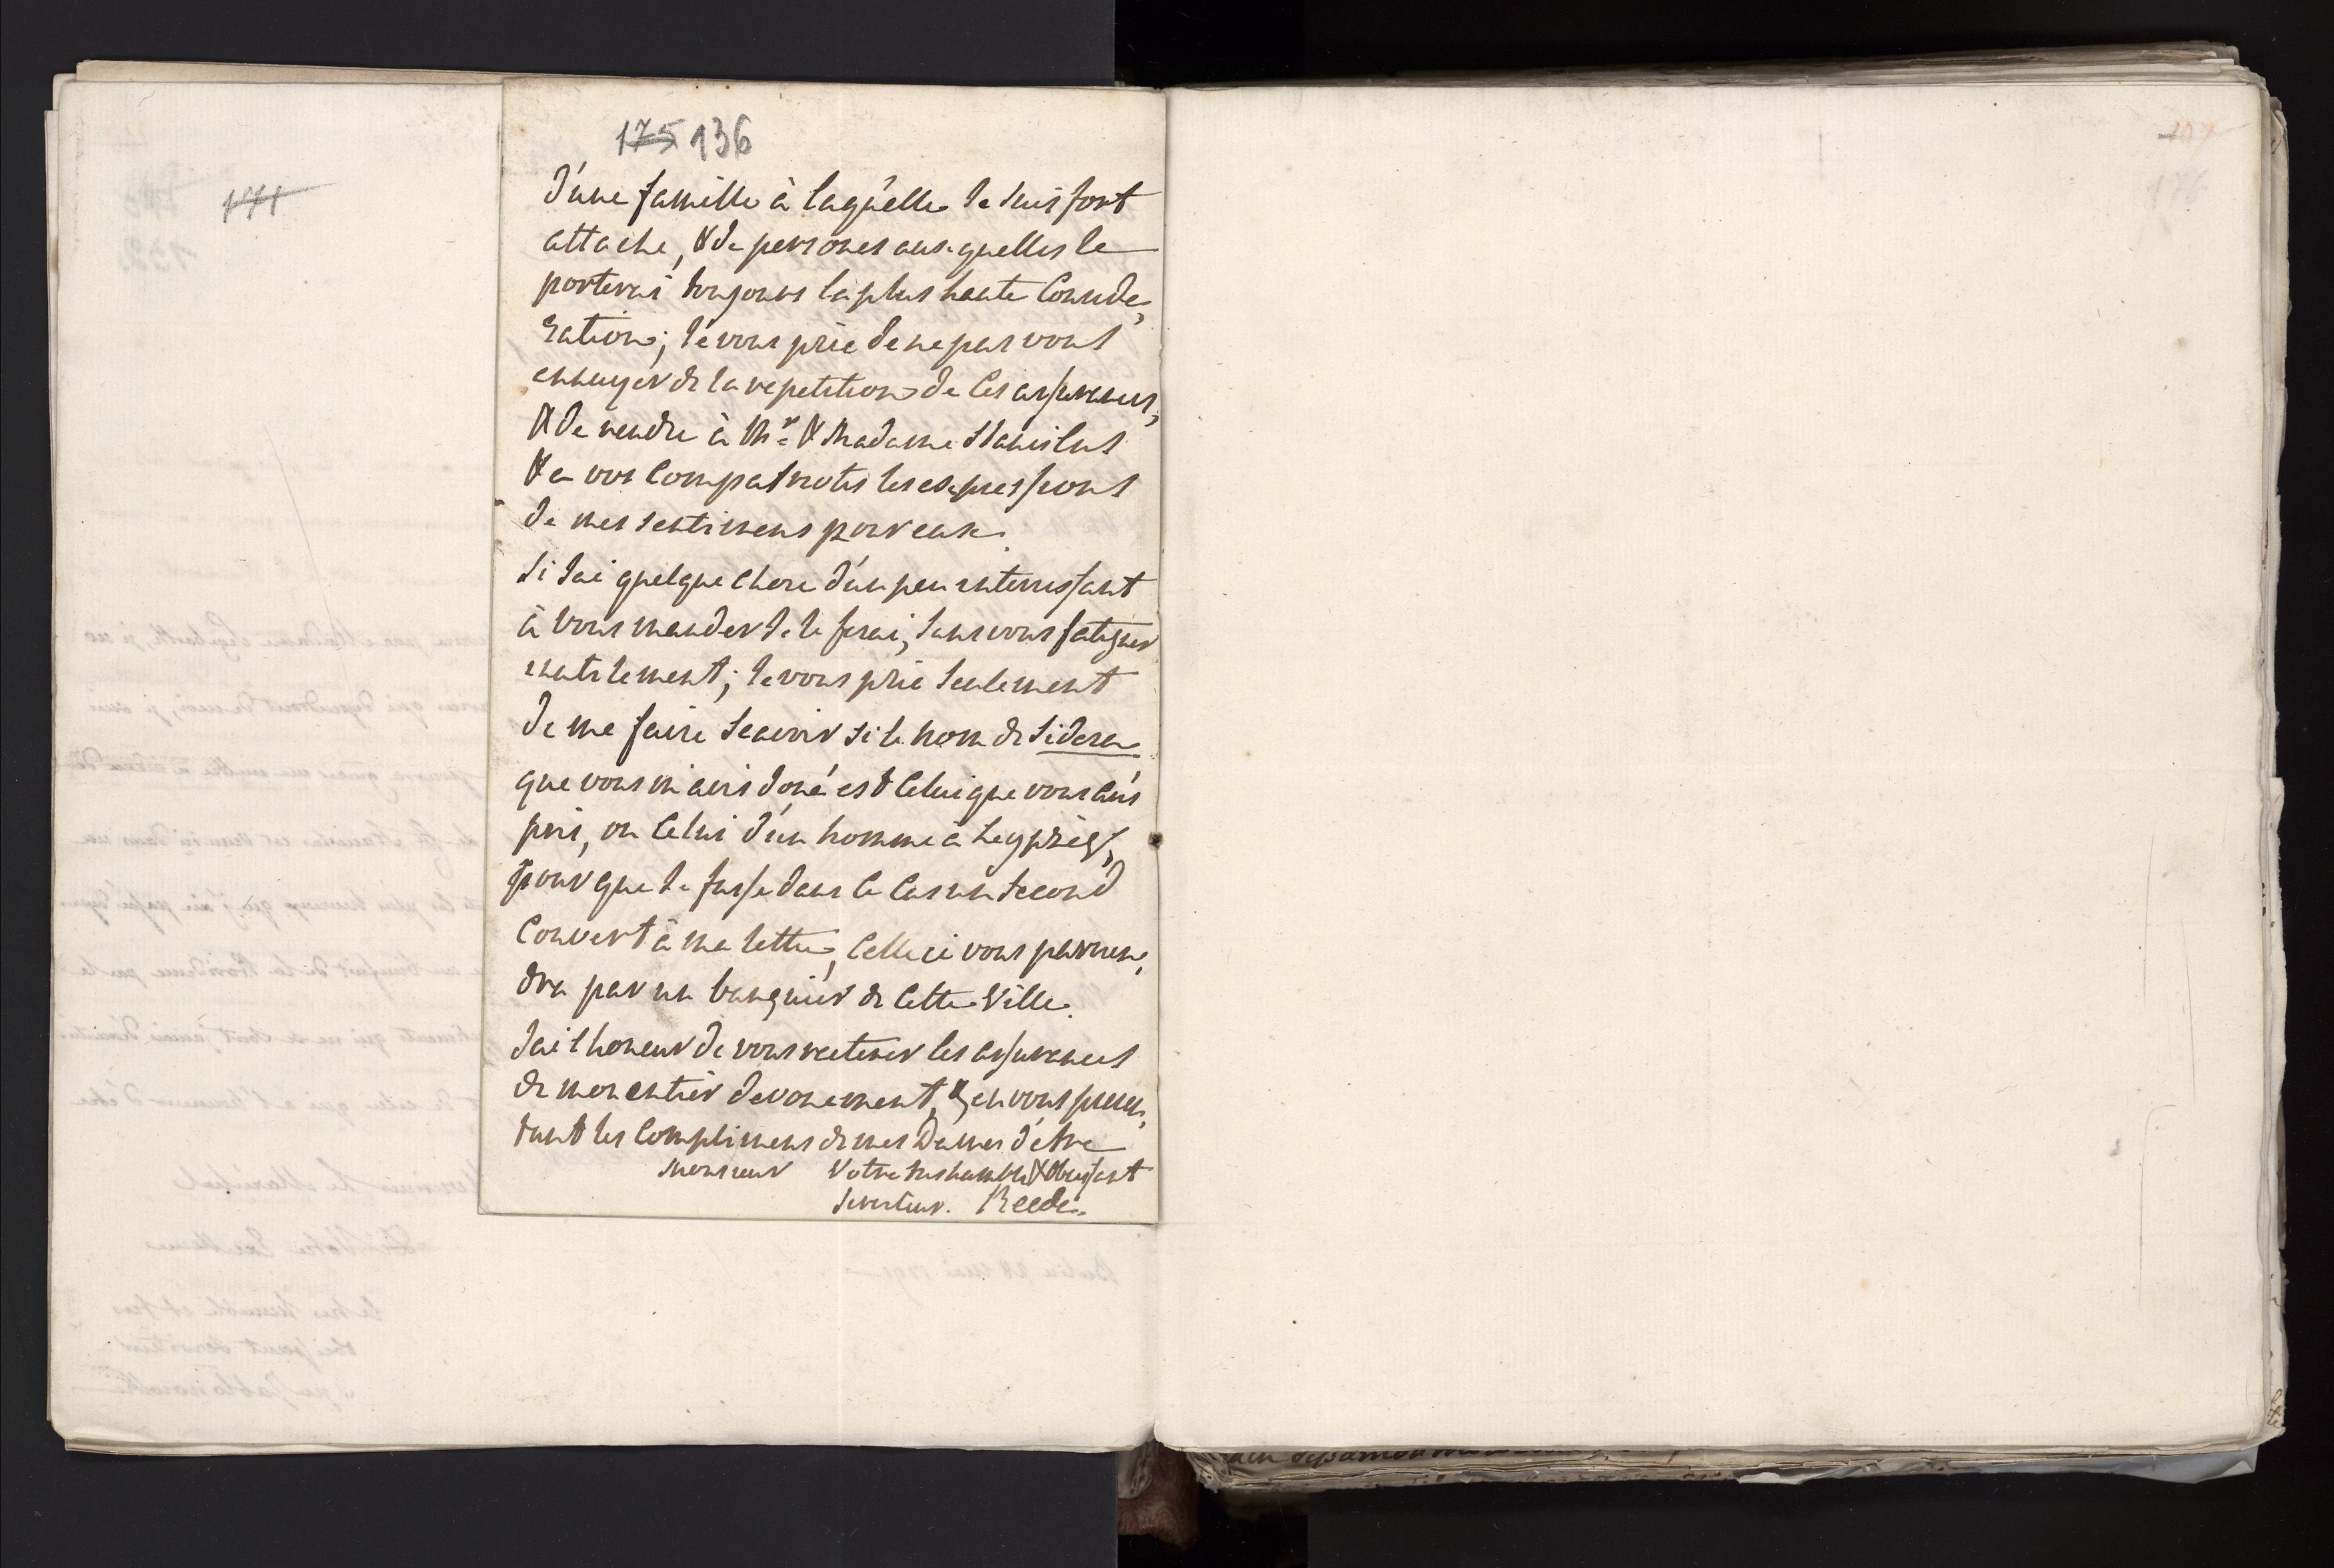 171
175 136
d'une famille à laquelle Je suis fort
attaché, & de persones auxquelles Je
porterai toujours la plus haute Conside,
ration; Je vous prie de ne pas vous
ennuyer de la repetition de Ces assurances,
& de rendre à Mr & Madame Stanislas
& a vos Compatriotes les expressions
de mes sentimens pour eux.
Si Jai quelque chose d'un peu interressant
à vous mander Je le ferai, sans vous fatiguer
inutilement; Je vous prie seulement
de me faire scavoir si le nom de Sidera
que vous m'avés doné est Celui que vous avés
pris, ou Celui d'un homme à Leypzieg,
pour que Je fasse dans Ce Cas un second
Couvert à ma lettre, Celle ci vous parvien,
dra par un banquier de Cette Ville.
Jai l'honeur de vous reiterer les assurances
de mon entier devouement, & en vous presen,
tant les Complimens de mes Dames d'être
Monsieur Votre tres humble & Obeissant
Serviteur. Reede.